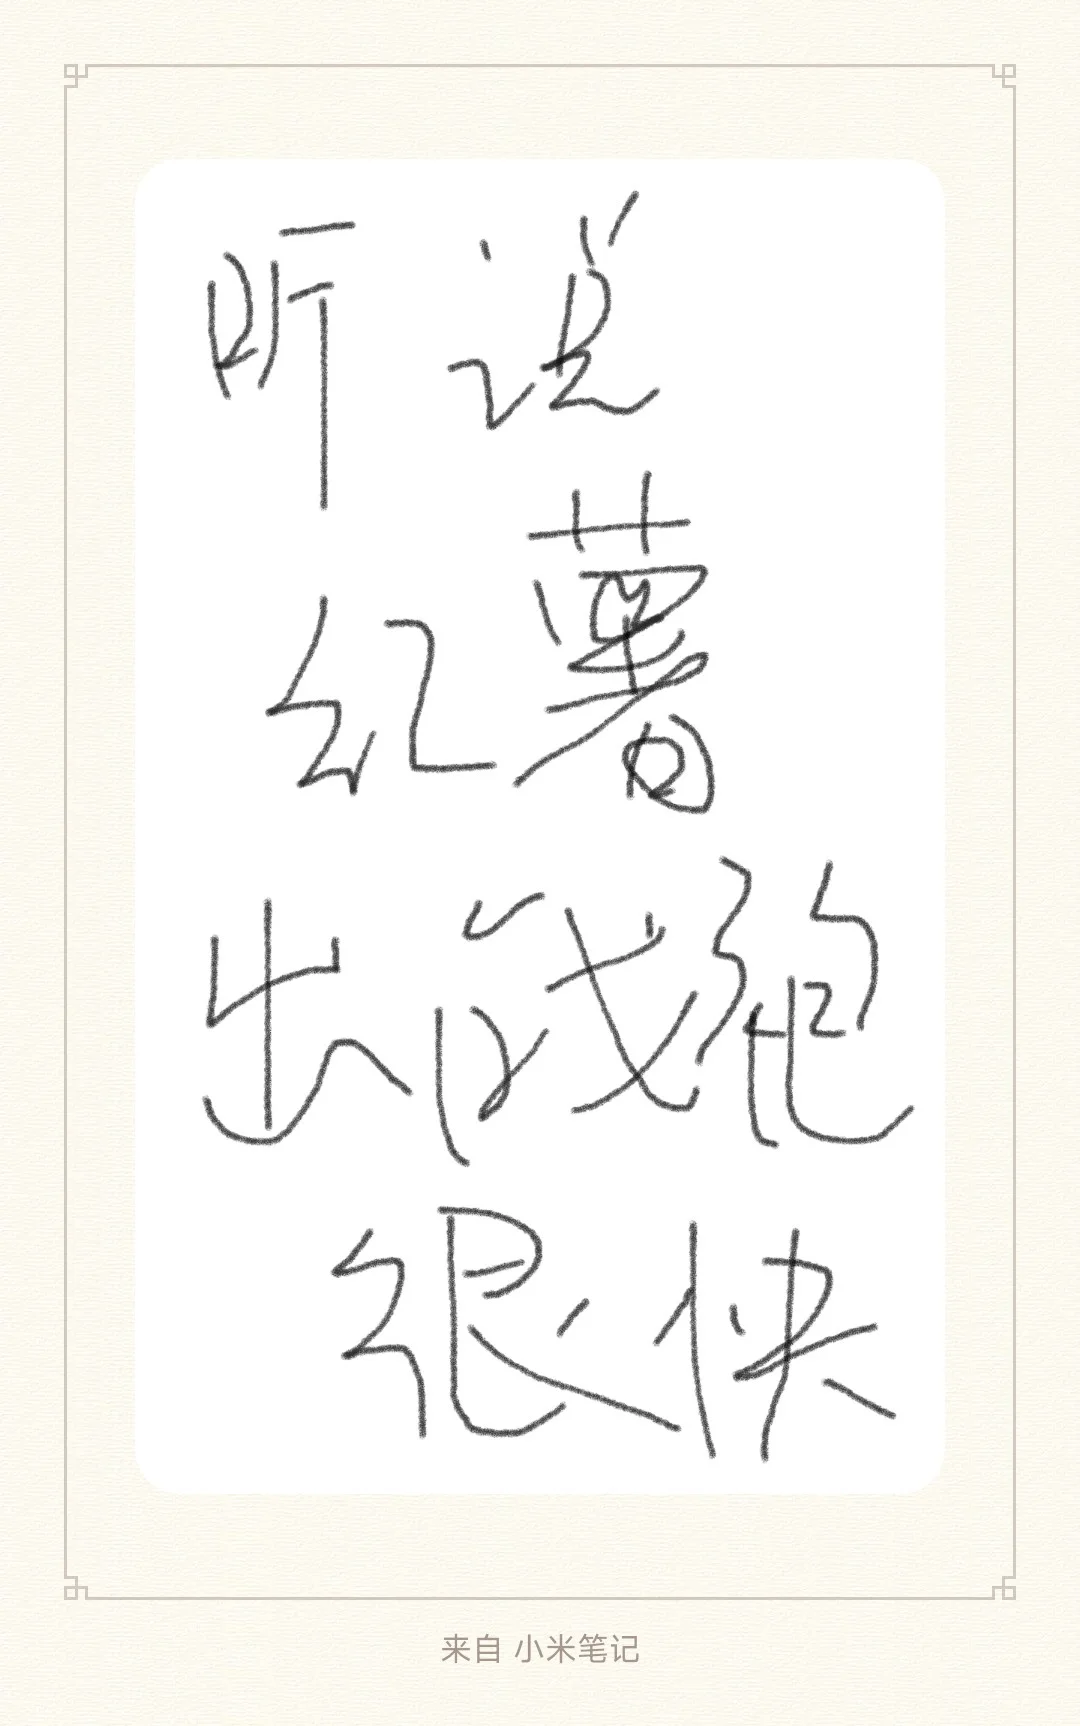 听说
红薯
出战绝
很快
来自 小米笔记